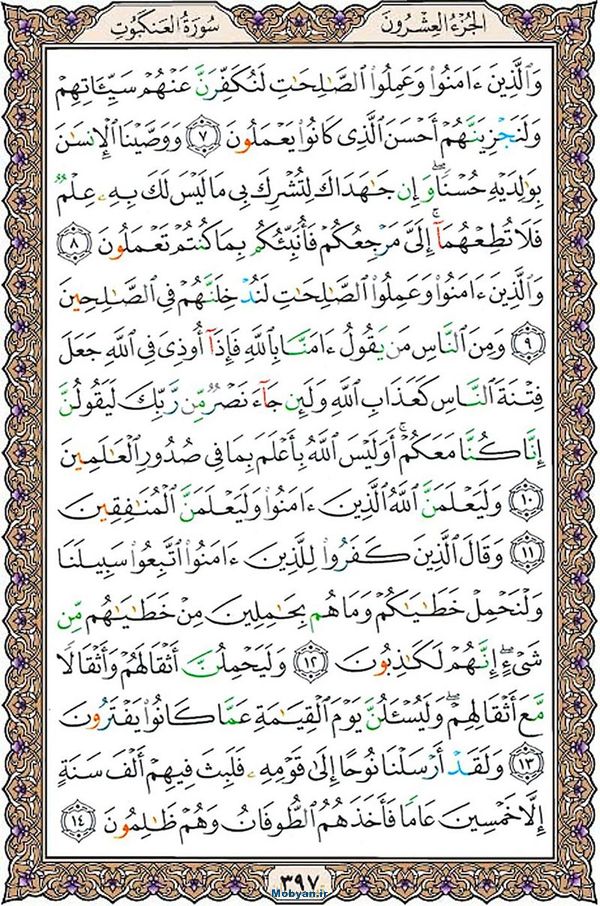 الجزء العشرون
سورة العنكبوت
وَٱلَّذِينَ ءَامَنُوا۟ وَعَمِلُوا۟ ٱلصَّـٰلِحَـٰتِ لَنُكَفِّرَنَّ عَنْهُمْ سَيِّـَٔاتِهِمْ
وَلَنَجْزِيَنَّهُمْ أَحْسَنَ ٱلَّذِى كَانُوا۟ يَعْمَلُونَ ٧ وَوَصَّيْنَا ٱلْإِنسَـٰنَ
بِوَٰلِدَيْهِ حُسْنًا ۖ وَإِن جَـٰهَدَاكَ لِتُشْرِكَ بِى مَا لَيْسَ لَكَ بِهِۦ عِلْمٌ
فَلَا تُطِعْهُمَآ ۚ إِلَىَّ مَرْجِعُكُمْ فَأُنَبِّئُكُم بِمَا كُنتُمْ تَعْمَلُونَ ٨
وَٱلَّذِينَ ءَامَنُوا۟ وَعَمِلُوا۟ ٱلصَّـٰلِحَـٰتِ لَنُدْخِلَنَّهُمْ فِى ٱلصَّـٰلِحِينَ
٩ وَمِنَ ٱلنَّاسِ مَن يَقُولُ ءَامَنَّا بِٱللَّهِ فَإِذَآ أُوذِىَ فِى ٱللَّهِ جَعَلَ
فِتْنَةَ ٱلنَّاسِ كَعَذَابِ ٱللَّهِ وَلَئِن جَآءَ نَصْرٌ مِّن رَّبِّكَ لَيَقُولُنَّ
إِنَّا كُنَّا مَعَكُمْ ۚ أَوَلَيْسَ ٱللَّهُ بِأَعْلَمَ بِمَا فِى صُدُورِ ٱلْعَـٰلَمِينَ
١٠ وَلَيَعْلَمَنَّ ٱللَّهُ ٱلَّذِينَ ءَامَنُوا۟ وَلَيَعْلَمَنَّ ٱلْمُنَـٰفِقِينَ
١١ وَقَالَ ٱلَّذِينَ كَفَرُوا۟ لِلَّذِينَ ءَامَنُوا۟ ٱتَّبِعُوا۟ سَبِيلَنَا
وَلْنَحْمِلْ خَطَـٰيَـٰكُمْ وَمَا هُم بِحَـٰمِلِينَ مِنْ خَطَـٰيَـٰهُم مِّن
شَىْءٍ ۖ إِنَّهُمْ لَكَـٰذِبُونَ ١٢ وَلَيَحْمِلُنَّ أَثْقَالَهُمْ وَأَثْقَالًا
مَّعَ أَثْقَالِهِمْ ۖ وَلَيُسْـَٔلُنَّ يَوْمَ ٱلْقِيَـٰمَةِ عَمَّا كَانُوا۟ يَفْتَرُونَ
١٣ وَلَقَدْ أَرْسَلْنَا نُوحًا إِلَىٰ قَوْمِهِۦ فَلَبِثَ فِيهِمْ أَلْفَ سَنَةٍ
إِلَّا خَمْسِينَ عَامًا فَأَخَذَهُمُ ٱلطُّوفَانُ وَهُمْ ظَـٰلِمُونَ ١٤
٣٩٧
Mobyan.ir